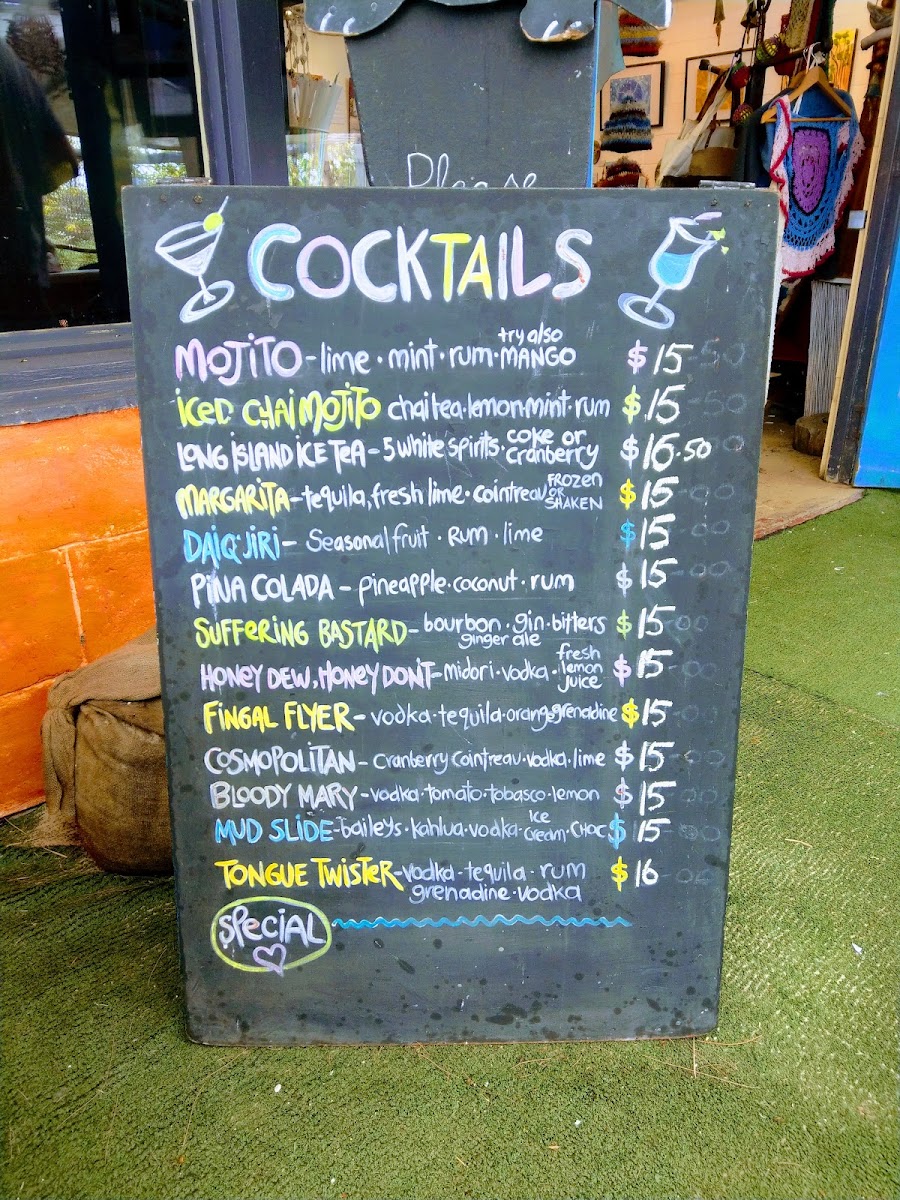 Please
COCKTAILS
MOJITO - lime · mint · rum · try also MANGO $15
ICED CHAI MOJITO chai tea · lemon · mint · rum $15
LONG ISLAND ICE TEA - 5 white spirits · coke or cranberry $16.50
MARGARITA - tequila, fresh lime · cointreau FROZEN OR SHAKEN $15
DAIQ'JIRI - Seasonal fruit · Rum · lime $15
PINA COLADA - pineapple · coconut · rum $15
SUFFERING BASTARD - bourbon · gin · bitters ginger ale $15
HONEY DEW, HONEY DONT - midori · vodka · fresh lemon juice $15
FINGAL FLYER - vodka · tequila · orange grenadine $15
COSMOPOLITAN - Cranberry Cointreau · vodka · lime $15
BLOODY MARY - vodka · tomato · tobasco · lemon $15
MUD SLIDE - baileys · kahlua · vodka · Ice Cream · CHOC $15
TONGUE TWISTER - vodka · tequila · rum $16
grenadine · vodka
SPECIAL